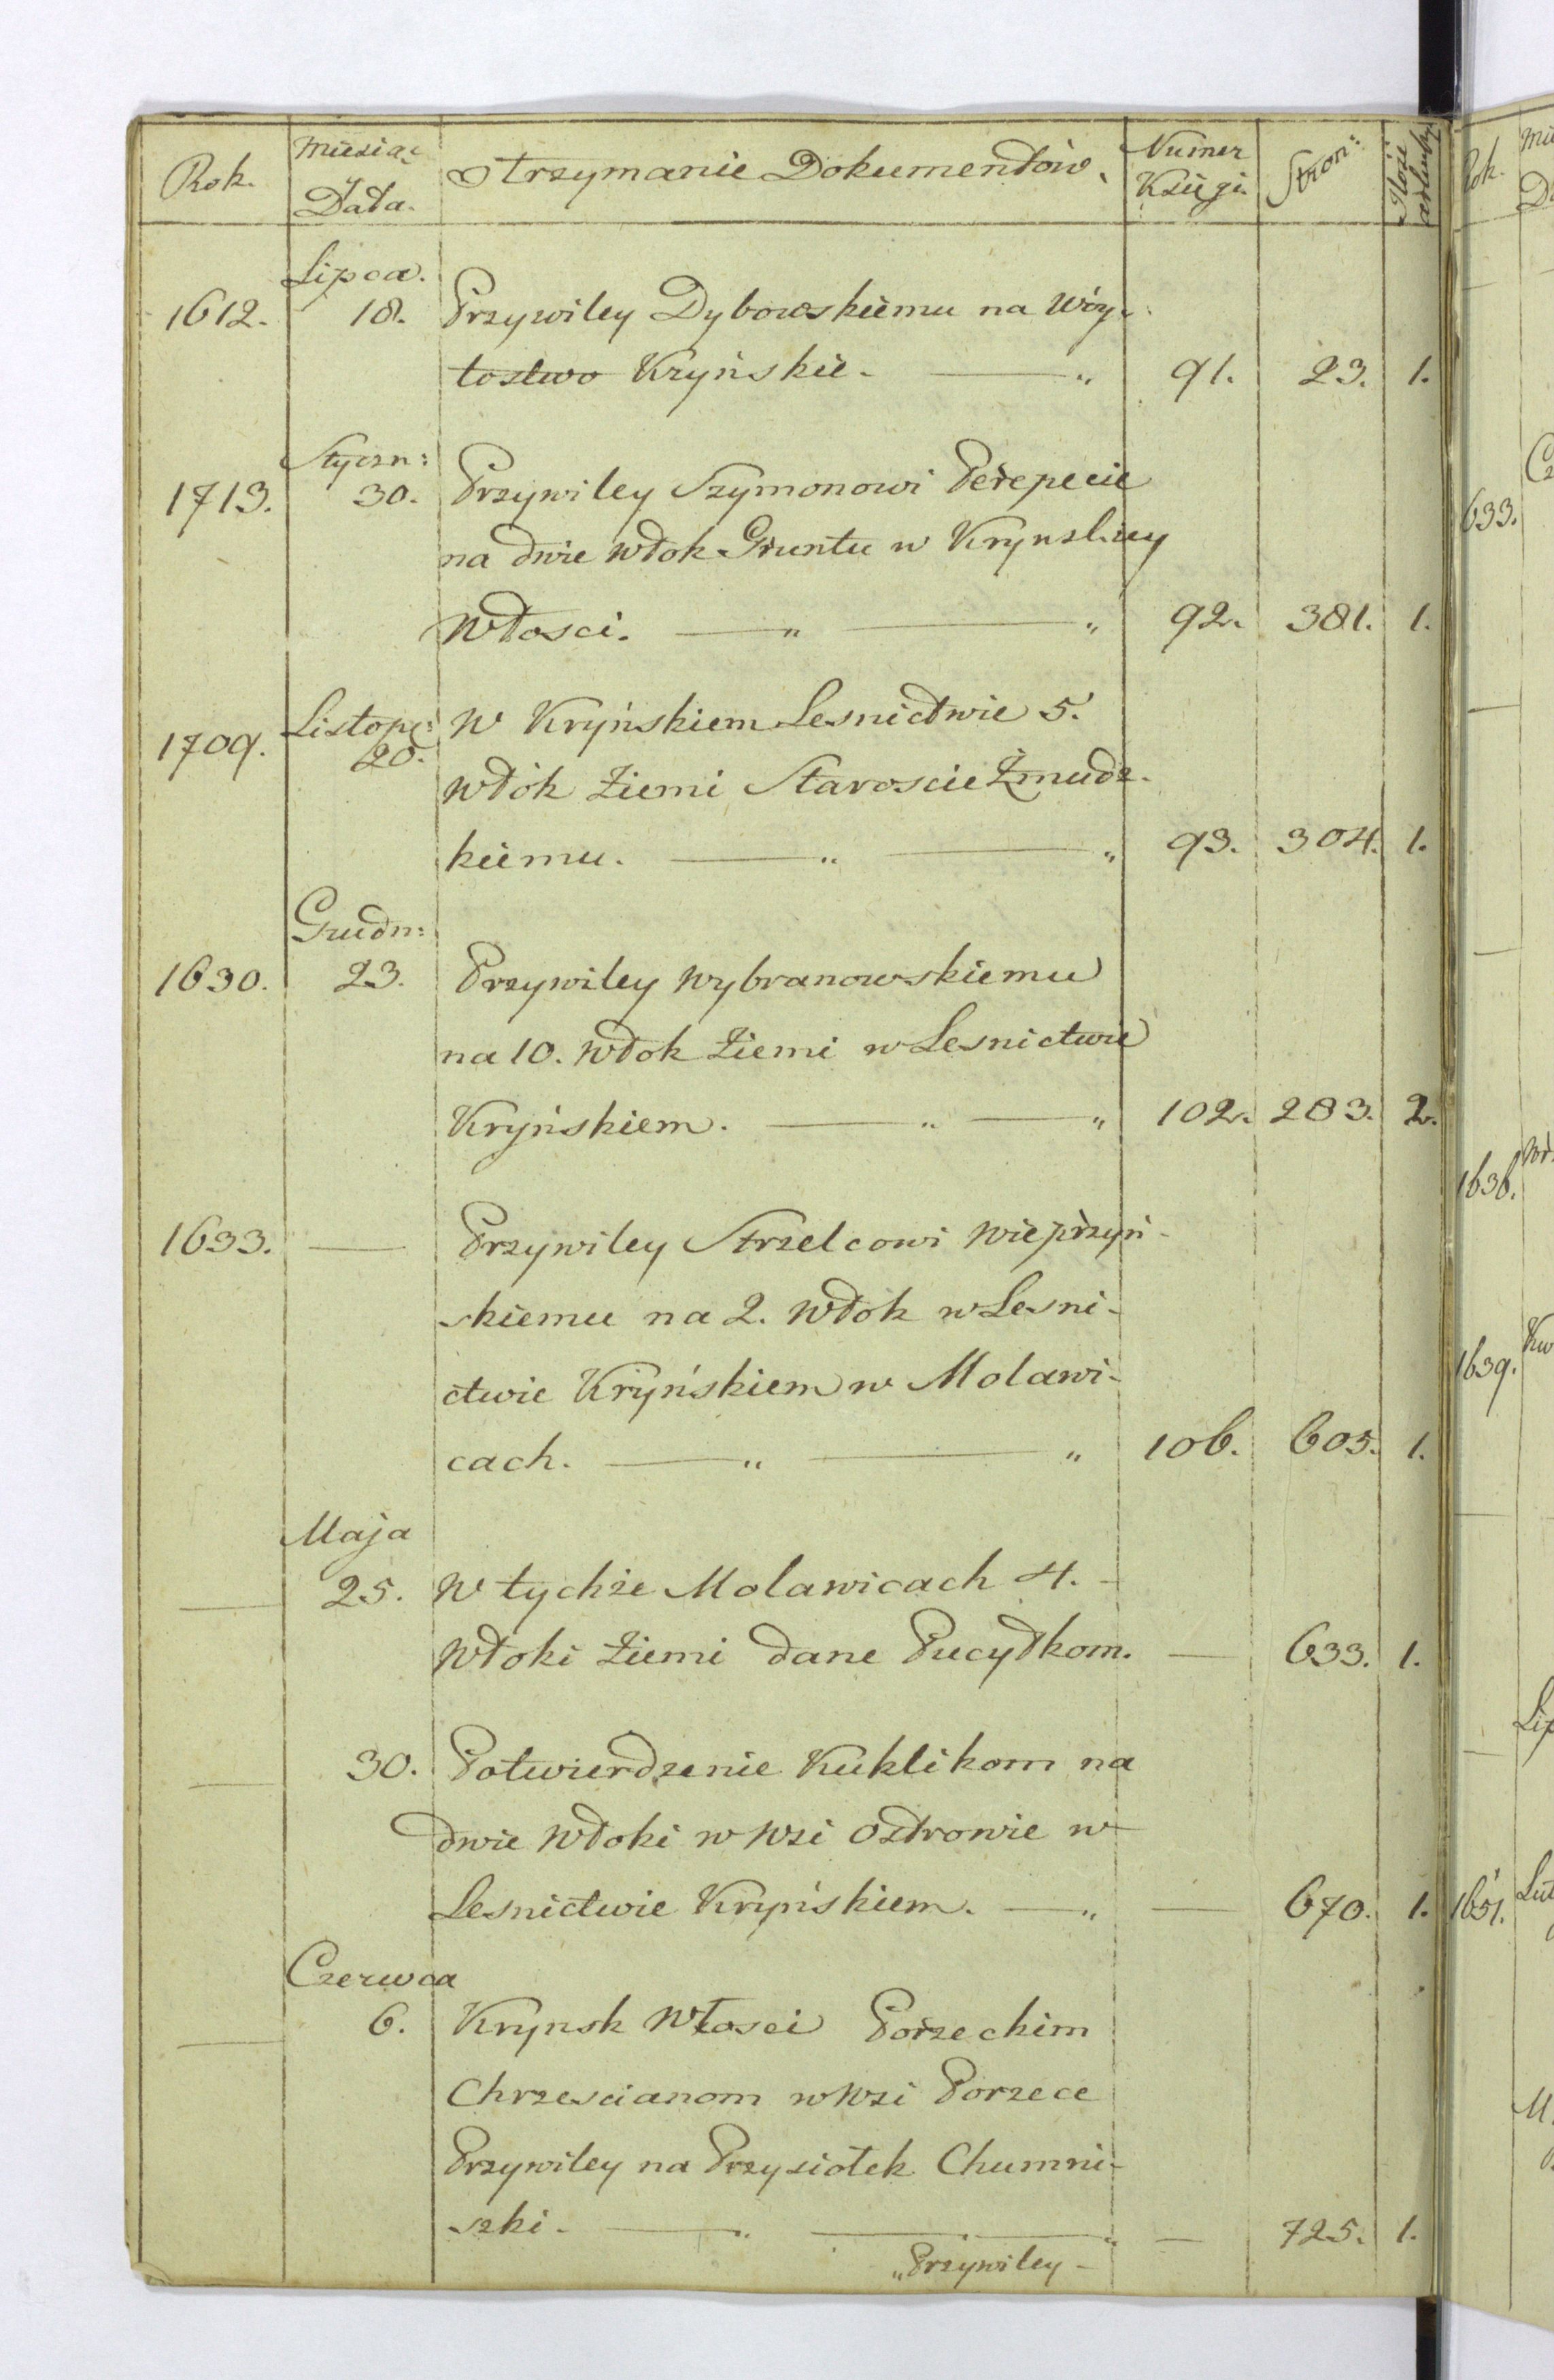 Rok. Miesiąc y Data. Otrzymanie Dokumentów. Numer Księgi Stron: Ilość arkuszy
Lipca.
1612. 18. Przywiley Dybowskiemu na Wóy-
tostwo Kryńskie. — „ 91. 23. 1.
Styczn:
1713. 30. Przywiley Szymonowi Perepecie
na dwie włok Gruntu w Krynskiey
Włosci. — „ — „ 92. 381. 1.
Listop: W Kryńskiem Lesnictwie 5.
1709. 20.
włók Ziemi Staroscie Żmudz-
kiemu. — „ — „ 93. 304. 1.
Grudn:
1630. 23. Przywiley Wybranowskiemu
na 10. włok Ziemi w Lesnictwie
Kryńskiem. — „ — „ 102. 283. 2.
1633. — Przywiley Strzelcowi Wieprzyń-
skiemu na 2. włók w Lesni-
ctwie Kryńskiem w Molawi-
cach. — „ — „ 106. 605. 1.
Maja
— 25. W tychże Molawicach 4. -
włoki Ziemi dane Pucyłkom. — 633. 1.
— 30. Potwierdzenie Kuklikom na
dwie włoki w wsi Ostrowie w
Lesnictwie Kryńskiem. — „ — 670. 1.
Czerwca
— 6. Krynsk Włosci Porzeckim
Chrzescianom w wsi Porzece
Przywiley na Przysiołek Chumni-
szki. — „ — „ — 725. 1.
„Przywiley -
Rok.
633.
1636.
1639.
1651.